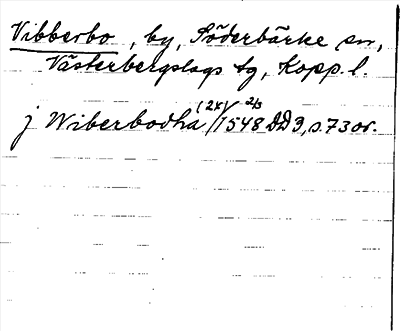 Vibberbo, by, Söderbärke sn,
Västerbergslags tg, Kopp. l.
j Wiberbodha (2x) 1548 2/3 DD 3, s. 73 or.